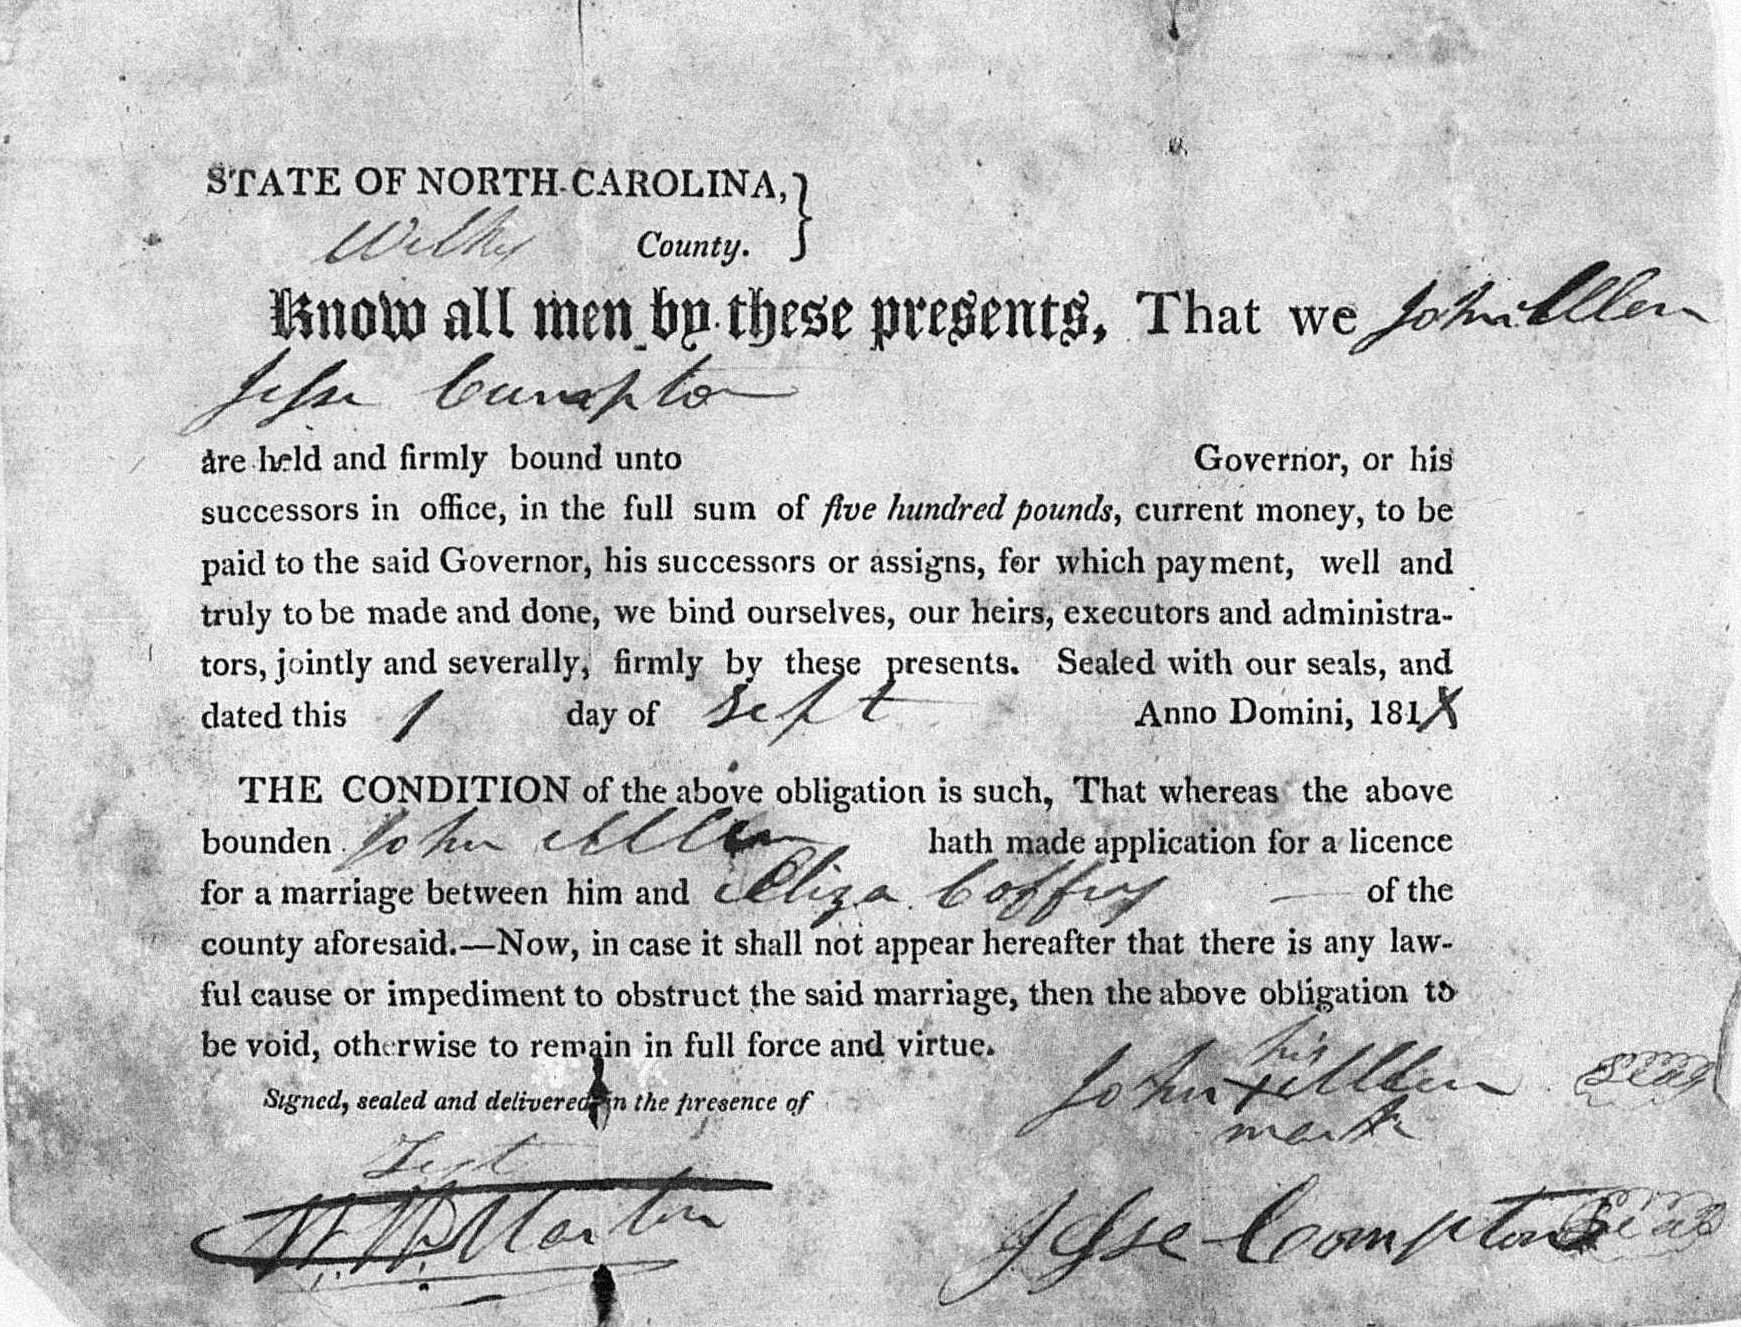 STATE OF NORTH-CAROLINA,
Wilkes County.
Know all men by these presents, That we John Allen
Jesse Cumpton
are held and firmly bound unto Governor, or his
successors in office, in the full sum of five hundred pounds, current money, to be
paid to the said Governor, his successors or assigns, for which payment, well and
truly to be made and done, we bind ourselves, our heirs, executors and administra-
tors, jointly and severally, firmly by these presents. Sealed with our seals, and
dated this 1 day of Sept Anno Domini, 181
THE CONDITION of the above obligation is such, That whereas the above
bounden John Allen hath made application for a licence
for a marriage between him and Eliza Coffey of the
county aforesaid.—Now, in case it shall not appear hereafter that there is any law-
ful cause or impediment to obstruct the said marriage, then the above obligation to
be void, otherwise to remain in full force and virtue.
his
John x Allen Seal
mark
Signed, sealed and delivered in the presence of
Test
Martin
Jesse Compton Seal